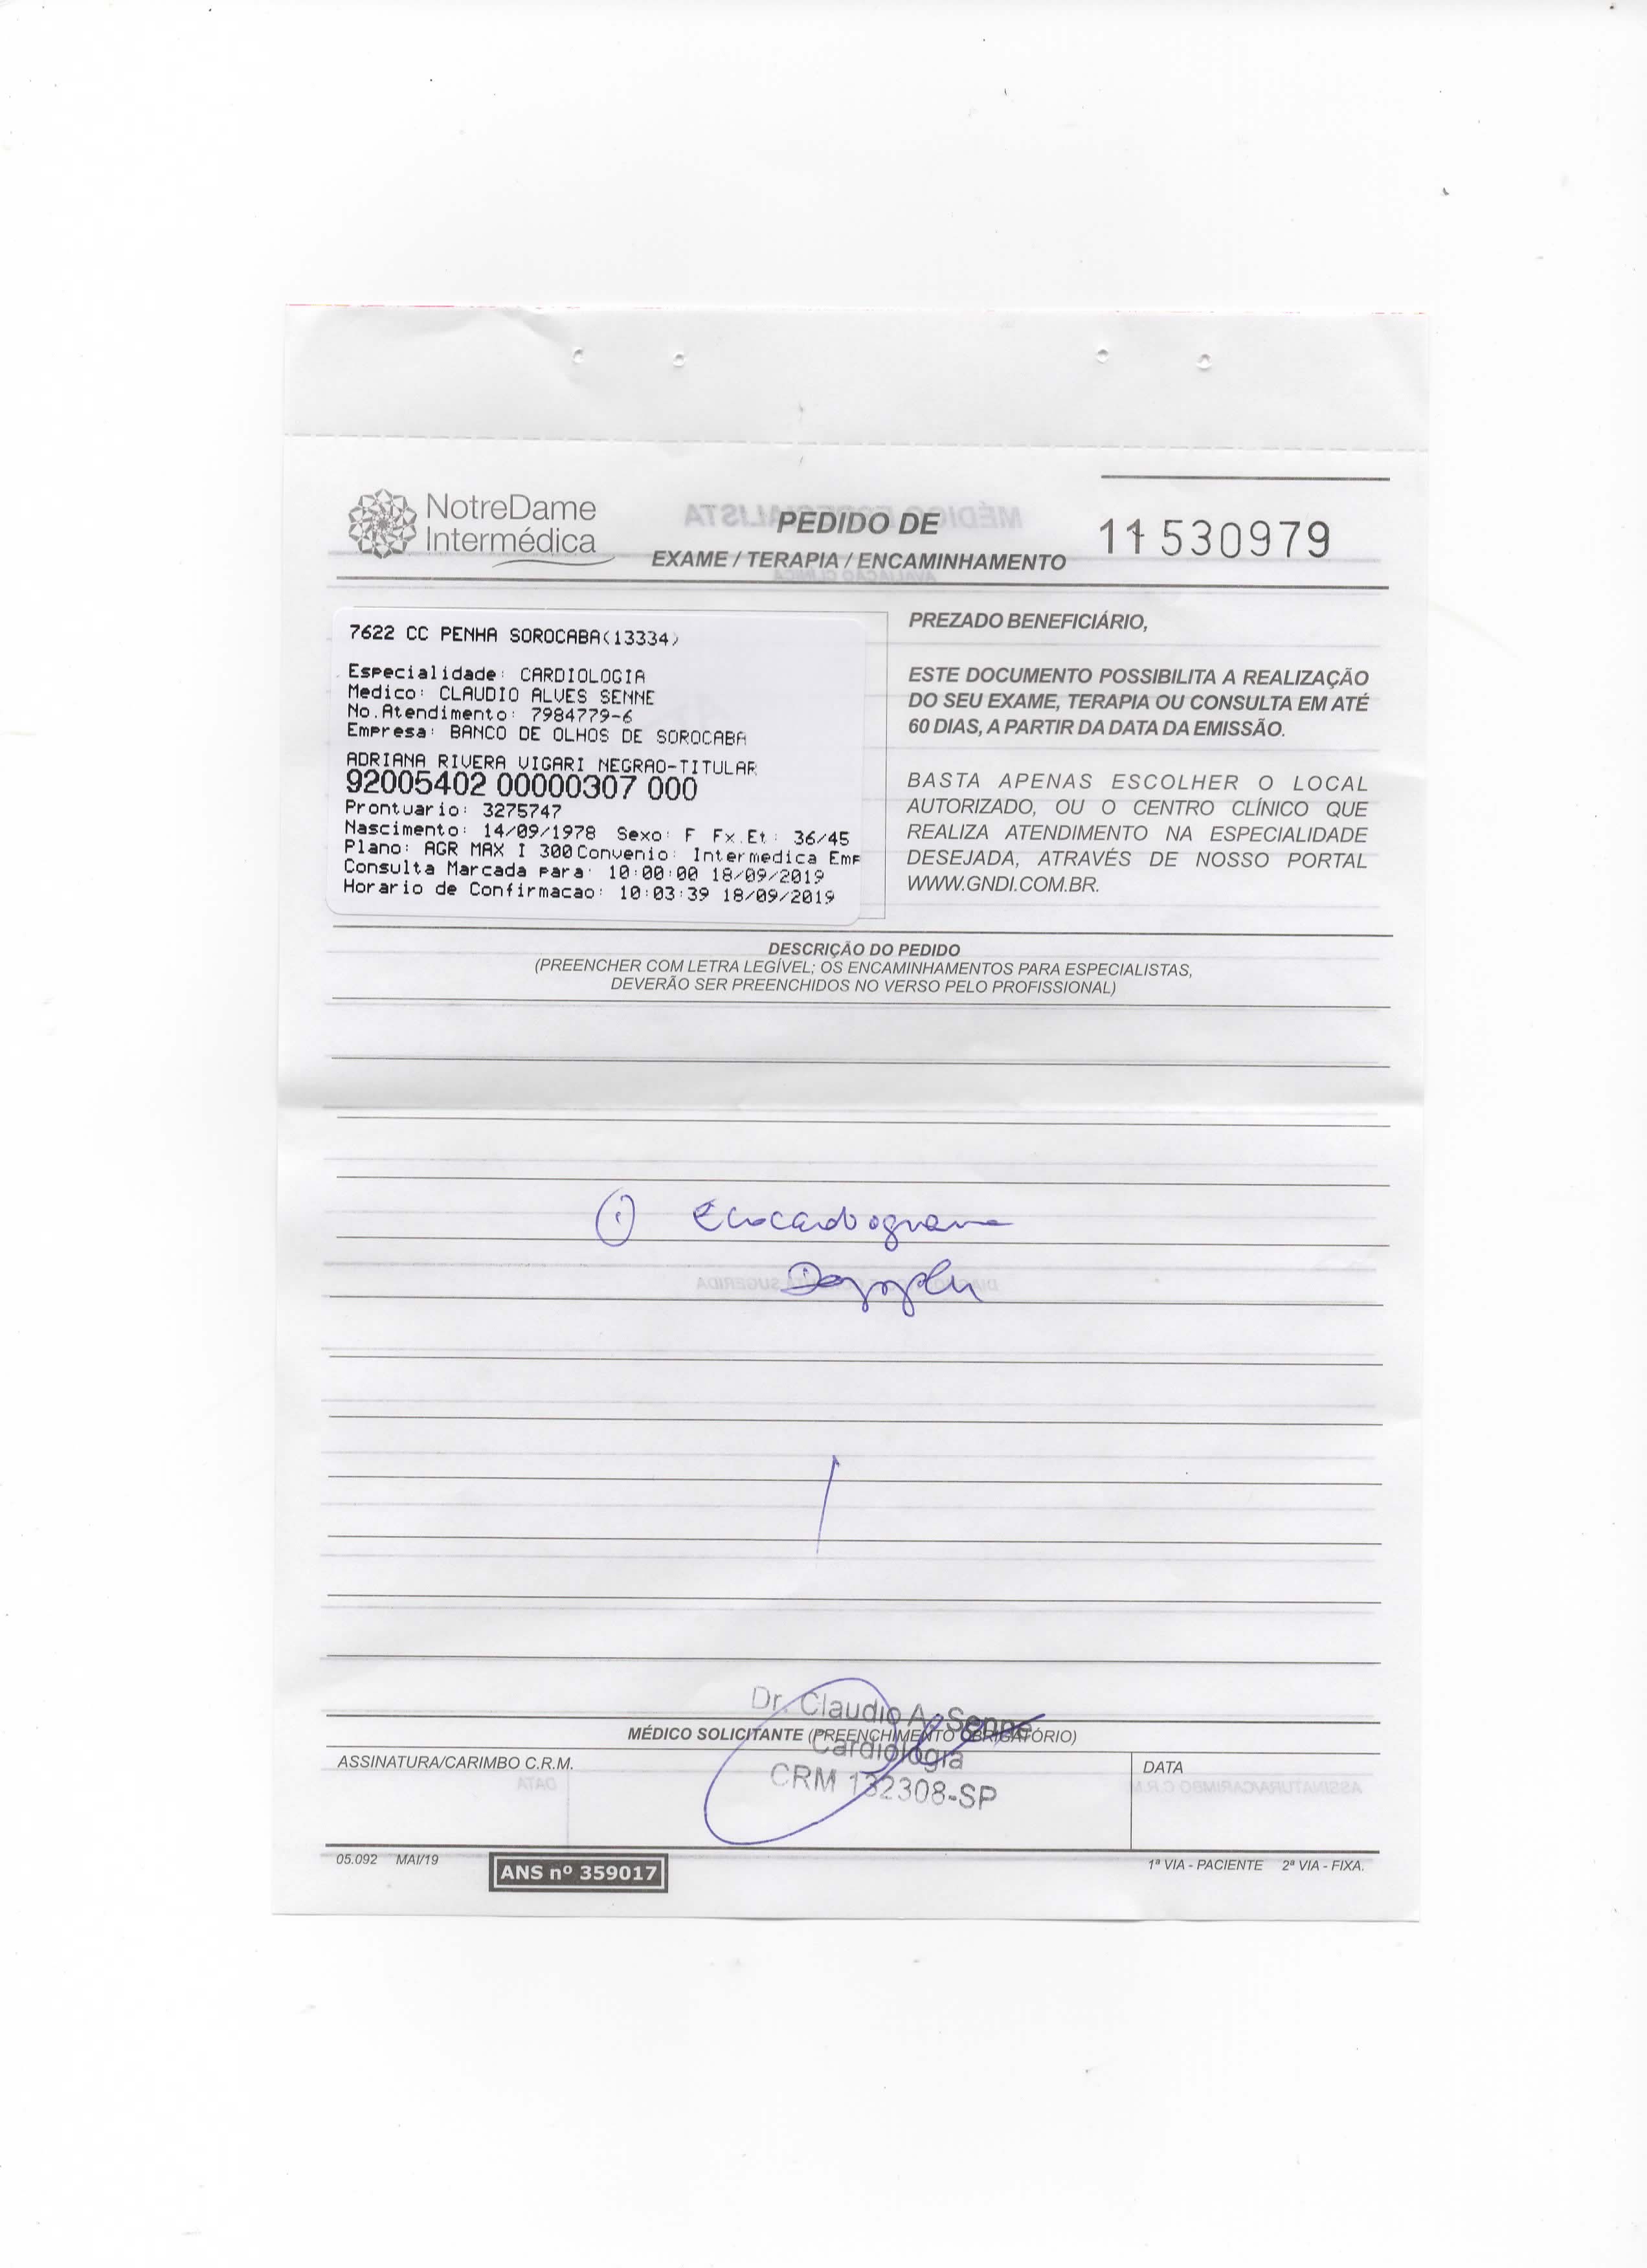 NotreDame
Intermédica
PEDIDO DE
EXAME / TERAPIA / ENCAMINHAMENTO
11530979
7622 CC PENHA SOROCABA(13334)
Especialidade: CARDIOLOGIA
Medico: CLAUDIO ALVES SENNE
No.Atendimento: 7984779-6
Empresa: BANCO DE OLHOS DE SOROCABA
ADRIANA RIVERA VIGARI NEGRAO-TITULAR
92005402 00000307 000
Prontuario: 3275747
Nascimento: 14/09/1978 Sexo: F Fx.Et: 36/45
Plano: AGR MAX I 300 Convenio: Intermedica Emp
Consulta Marcada para: 10:00:00 18/09/2019
Horario de Confirmacao: 10:03:39 18/09/2019
PREZADO BENEFICIÁRIO,
ESTE DOCUMENTO POSSIBILITA A REALIZAÇÃO
DO SEU EXAME, TERAPIA OU CONSULTA EM ATÉ
60 DIAS, A PARTIR DA DATA DA EMISSÃO.
BASTA APENAS ESCOLHER O LOCAL
AUTORIZADO, OU O CENTRO CLÍNICO QUE
REALIZA ATENDIMENTO NA ESPECIALIDADE
DESEJADA, ATRAVÉS DE NOSSO PORTAL
WWW.GNDI.COM.BR.
DESCRIÇÃO DO PEDIDO
(PREENCHER COM LETRA LEGÍVEL; OS ENCAMINHAMENTOS PARA ESPECIALISTAS,
DEVERÃO SER PREENCHIDOS NO VERSO PELO PROFISSIONAL)
① Ecocardiograma
Doppler
Dr. Claudio A. Senne
MÉDICO SOLICITANTE (PREENCHIMENTO OBRIGATÓRIO)
Cardiologia
ASSINATURA/CARIMBO C.R.M.
CRM 132308-SP
DATA
05.092 MAI/19
ANS nº 359017
1ª VIA - PACIENTE 2ª VIA - FIXA.